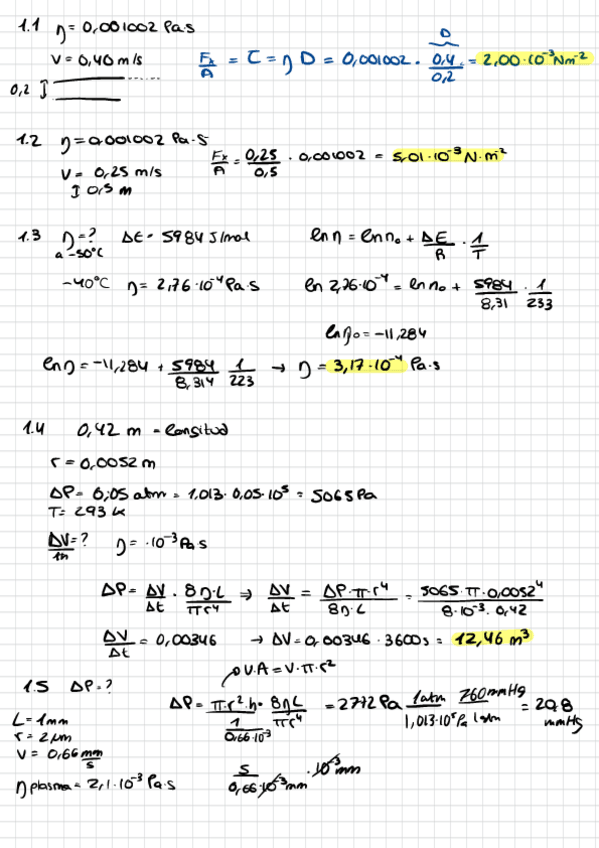 1.1 η = 0,001002 Pa·s
v = 0,40 m/s
0,2
Fx/A = τ = η D = 0,001002 · 0,4/0,2 = 2,00·10⁻³ Nm⁻²
D
1.2 η = 0,001002 Pa·s
v = 0,25 m/s
↕ 0,5 m
Fx/A = 0,25/0,5 · 0,001002 = 5,01·10⁻³ N·m⁻²
1.3 η = ? ΔE = 5984 J/mol
a -50°C
ln η = ln η₀ + ΔE/R · 1/T
-40°C η = 2,76·10⁻⁴ Pa·s
ln 2,76·10⁻⁴ = ln η₀ + 5984/8,31 · 1/233
ln η₀ = -11,284
ln η = -11,284 + 5984/8,314 1/223 → η = 3,17·10⁻⁴ Pa·s
1.4 0,42 m = longitud
r = 0,0052 m
ΔP = 0,05 atm = 1,013·0,05·10⁵ = 5065 Pa
T = 293 K
ΔV/1h = ? η = ·10⁻³ Pa·s
ΔP = ΔV/Δt · 8η·L/πr⁴ ⇒ ΔV/Δt = ΔP·π·r⁴/8η·L = 5065·π·0,0052⁴/8·10⁻³·0,42
ΔV/Δt = 0,00346 → ΔV = 0,00346 · 3600s = 12,46 m³
v·A = v·π·r²
1.5 ΔP = ?
L = 1mm
r = 2μm
v = 0,66 mm/s
η plasma = 2,1·10⁻³ Pa·s
ΔP = π·r²·h/(1/0,66·10⁻³) · 8ηL/πr⁴ = 2772 Pa 1atm/1,013·10⁵Pa 760mmHg/1atm = 20,8 mmHg
s/0,66·10⁻³mm · 10⁻³mm